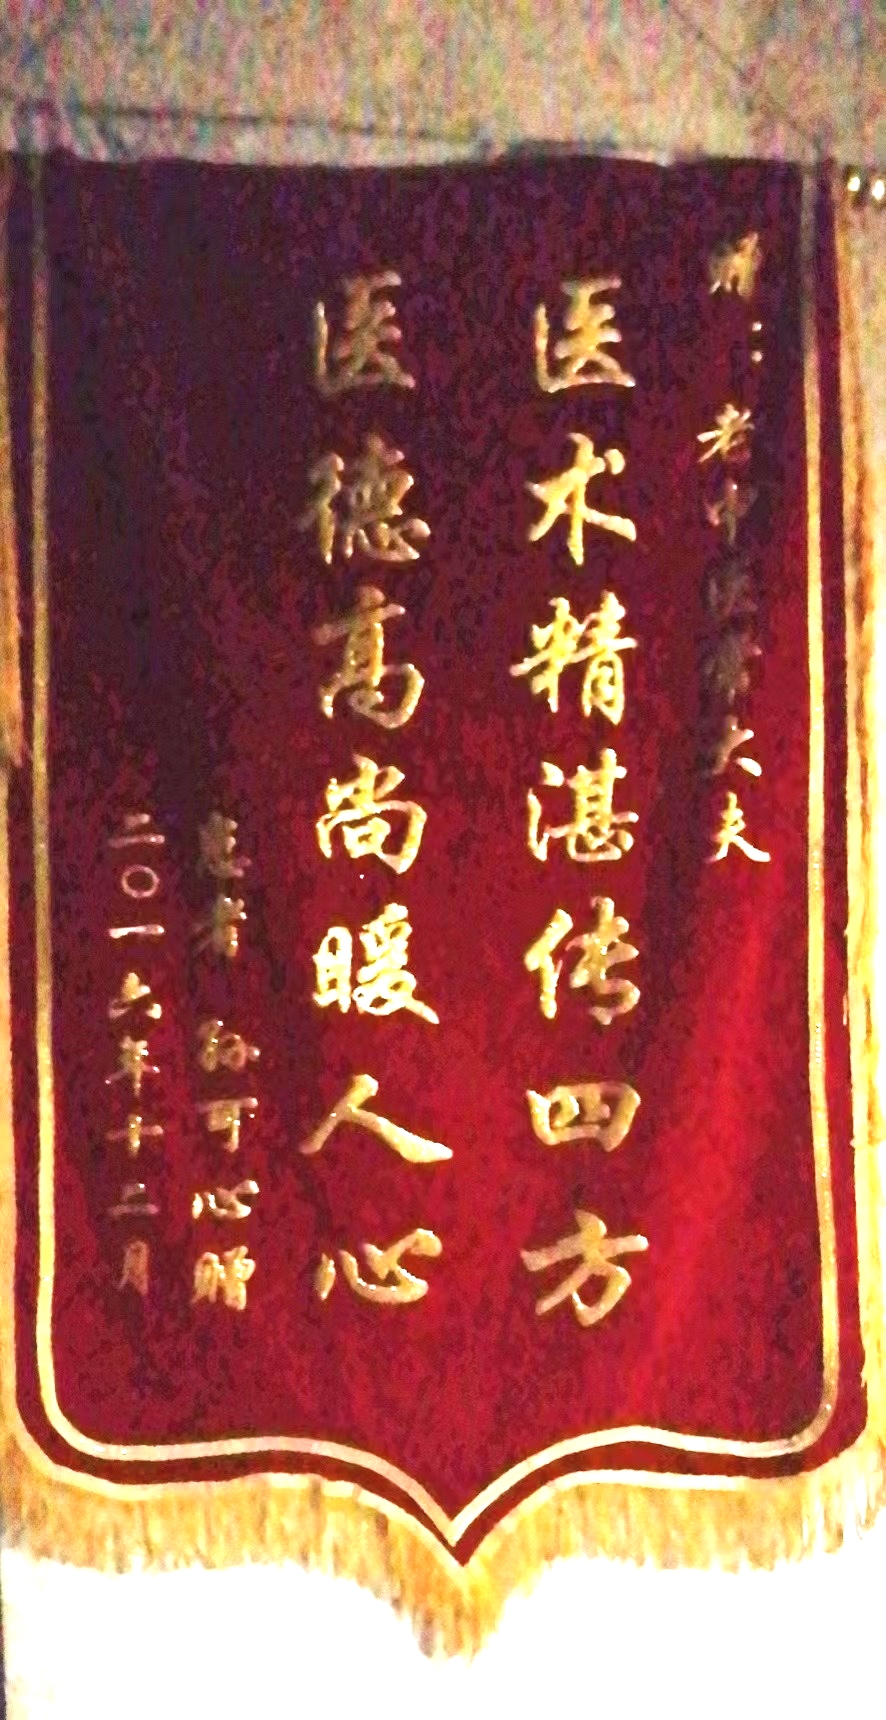 赠：老中医常大夫
医术精湛传四方
医德高尚暖人心
患者 孙可心赠
二〇一六年十二月